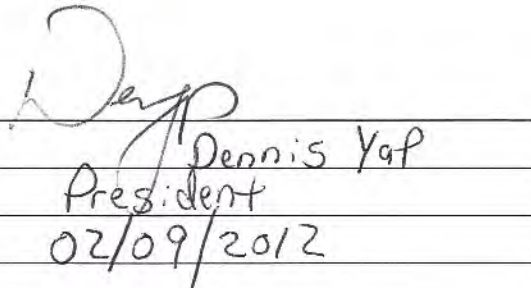 Dennis Yap
President
02/09/2012